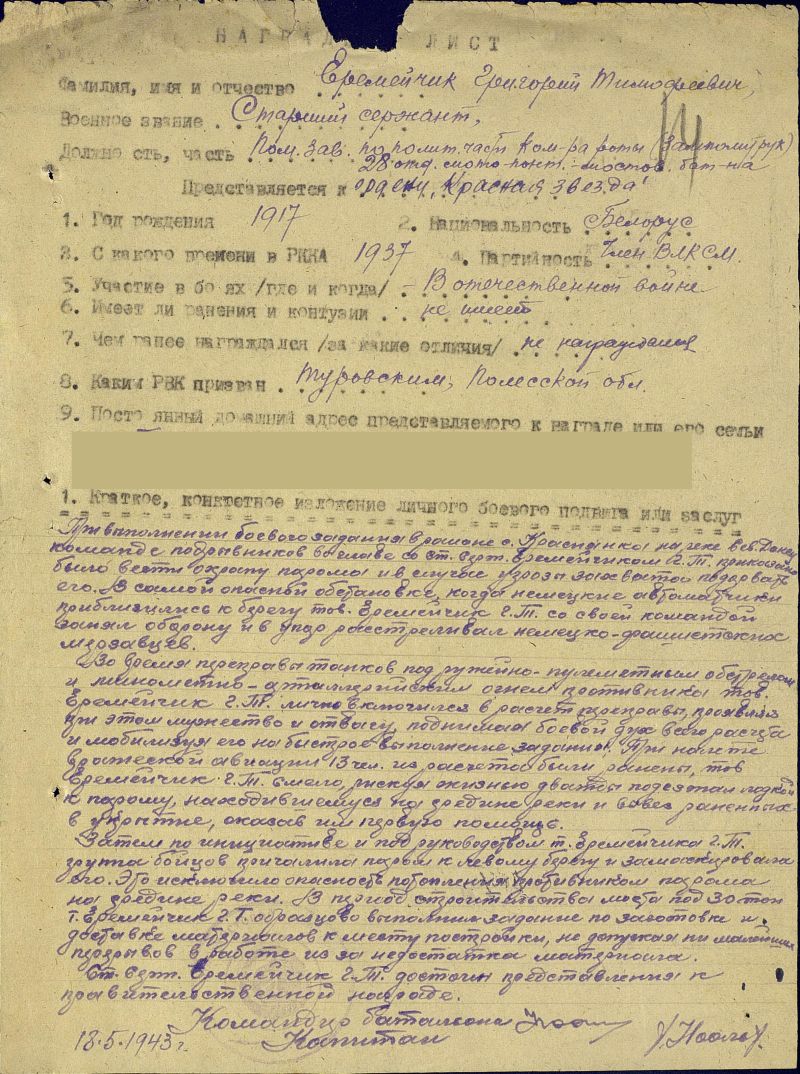 НАГРА ЛИСТ
Фамилия, имя и отчество Еремейчик Григорий Тимофеевич,
Военное звание Старший сержант.
Должность, часть Пом. зав. по полит. части Ком-ра роты (Замполитрук)
28 отд. мото-понт.-мостов. бат-на
Представляется к ордену "Красная звезда"
1. Год рождения 1917 2. Национальность Белорус
3. С какого времени в РККА 1937 4. Партийность Член ВЛКСМ.
5. Участие в боях /где и когда/ - В отечественной войне
6. Имеет ли ранения и контузии не имеет
7. Чем ранее награждался /за какие отличия/ не награждался
8. Каким РВК призван Туровским, Полесской обл.
9. Постоянный домашний адрес представляемого к награде или его семьи
1. Краткое, конкретное изложение личного боевого подвига или заслуг
При выполнении боевого задания в районе с. Краснянка на реке Сев. Донец
команде подрывников во главе со ст. серж. Еремейчиком Г.Т. приказано
было вести охрану парома и в случае угрозы захвата подорвать
его. В самой опасной обстановке, когда немецкие автоматчики
приблизились к берегу тов. Еремейчик Г.Т. со своей командой
занял оборону и в упор расстреливал немецко-фашистских
мерзавцев.
Во время переправы танков под ружейно-пулеметным обстрелом
и минометно-артиллерийским огнем противника тов.
Еремейчик Г.Т. лично включился в расчет переправы, проявляя
при этом мужество и отвагу, поднимая боевой дух всего расчета
и мобилизуя его на быстрое выполнение задания. При налете
вражеской авиации 13 чел. из расчета были ранены, тов
Еремейчик Г.Т. смело, рискуя жизнью дважды подъезжал лодкой
к парому, находившемуся на средине реки и вывез раненных
в укрытие, оказав им первую помощь.
Затем по инициативе и под руководством т. Еремейчика Г.Т.
группа бойцов причалила паром к левому берегу и замаскировала
его. Это исключило опасность потопления противником парома
на средине реки. В период строительства моста под 30 тон
т. Еремейчик Г.Т. образцово выполнил задание по заготовке и
доставке материалов к месту постройки, не допуская ни малейших
перерывов в работе из за недостатка материала.
Ст. серж. Еремейчик Г.Т. достоин представления к
правительственной награде.
Командир батальона
Капитан
18.5.1943 г.